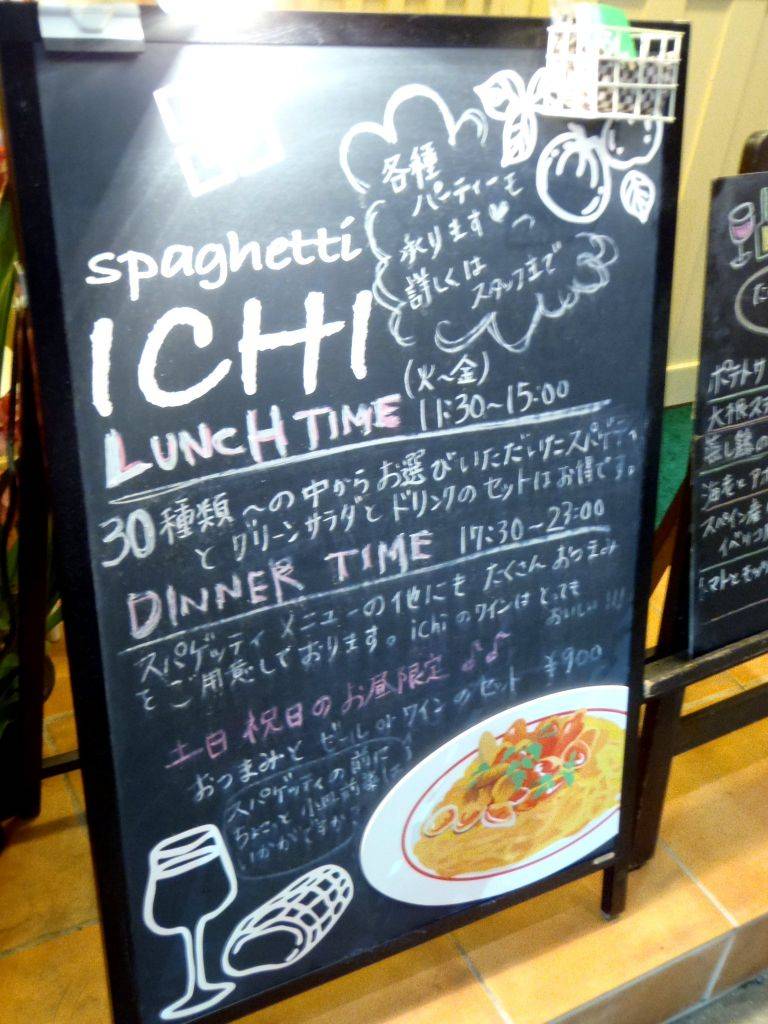 各種
パーティーも
承ります♥
詳しくは
スタッフまで
spaghetti
ICHI
(火〜金)
LUNCH TIME 11:30〜15:00
30種類〜の中からお選びいただいたスパゲティ
とグリーンサラダとドリンクのセットはお得です。
DINNER TIME 17:30〜23:00
スパゲッティメニューの他にもたくさんおつまみ
をご用意しております。ichiのワインはとっても
おいしい!!!
土日祝日のお昼限定♪♪
おつまみとビール orワインのセット ¥900
スパゲッティの前に
ちょこっと小皿前菜は
いかがですか?
ポテトサ
大根ステ
蒸し鶏の
海老とアボ
スペイン産
イベリコ
トマトとモッツ